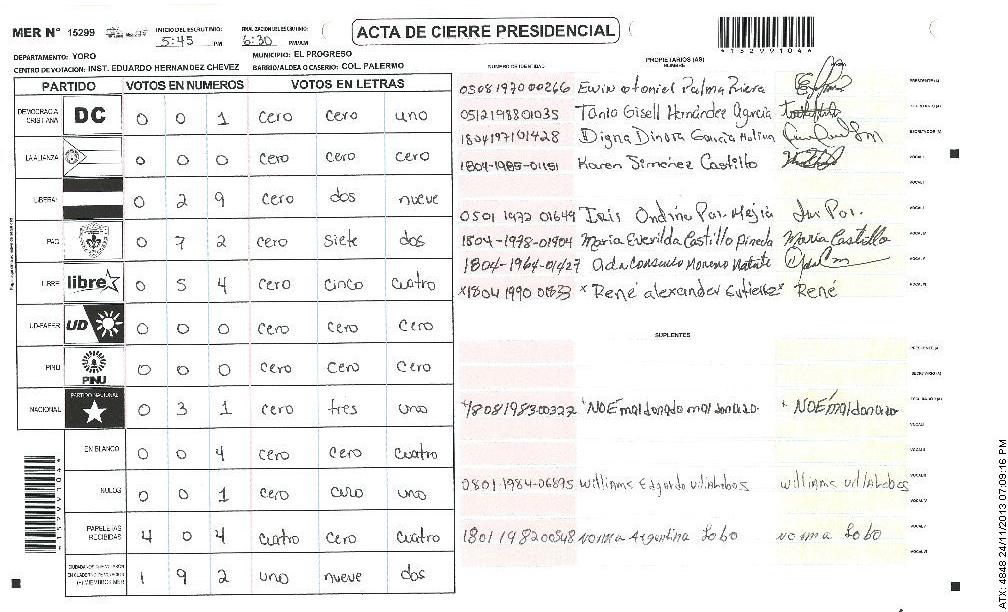 MER N° 15299
INICIO DEL ESCRUTINIO: 5:45 PM
FINALIZACION DEL ESCRUTINIO: 6:30 PM/AM
ACTA DE CIERRE PRESIDENCIAL
*15299104*
DEPARTAMENTO: YORO
MUNICIPIO: EL PROGRESO
CENTRO DE VOTACION: INST. EDUARDO HERNANDEZ CHEVEZ
BARRIO/ALDEA O CASERIO: COL. PALERMO
PARTIDO VOTOS EN NUMEROS VOTOS EN LETRAS
DEMOCRACIA CRISTIANA DC 0 0 1 cero cero uno
LA ALIANZA 0 0 0 cero cero cero
LIBERAL 0 2 9 cero dos nueve
PAC 0 7 2 cero siete dos
LIBRE libre 0 5 4 cero cinco cuatro
UD-FAPER UD 0 0 0 cero cero cero
PINU PINU 0 0 0 cero cero cero
NACIONAL PARTIDO NACIONAL 0 3 1 cero tres uno
EN BLANCO 0 0 4 cero cero cuatro
NULOS 0 0 1 cero cero uno
PAPELETAS RECIBIDAS 4 0 4 cuatro cero cuatro
1 9 2 uno nueve dos
*15299104*
NUMERO DE IDENTIDAD
PROPIETARIOS (AS)
NOMBRE
FIRMA
Ewin otoniel Palma Riera
PRESIDENTE (A)
0512198801035 Tania Gisell Hernández
SECRETARIO (A)
1804197101428 Digna Dinora García Molina
ESCRUTADOR (A)
1804-1985-01151 Karen Simenez Castillo
VOCAL I
0501 1972 01649 Iris Ondina Paz Mejia Iris Paz.
1804-1978-01904 Maria Everilda Castillo Pineda Maria Castillo
1804-1964-01427 Ada Consuelo Moreno
*1804 1990 01833 * René alexander Gutierrez * René
SUPLENTES
PRESIDENTE (A)
SECRETARIO (A)
NOÉ maldonado maldonado. * NOÉ maldonado
ESCRUTADOR (A)
0801-1984-06895 Williams Edgardo Villalobos Williams Villalobos
1801198200548 Norma Argentina Lobo Norma Lobo
ATX: 4848 24/11/2013 07:09:16 PM